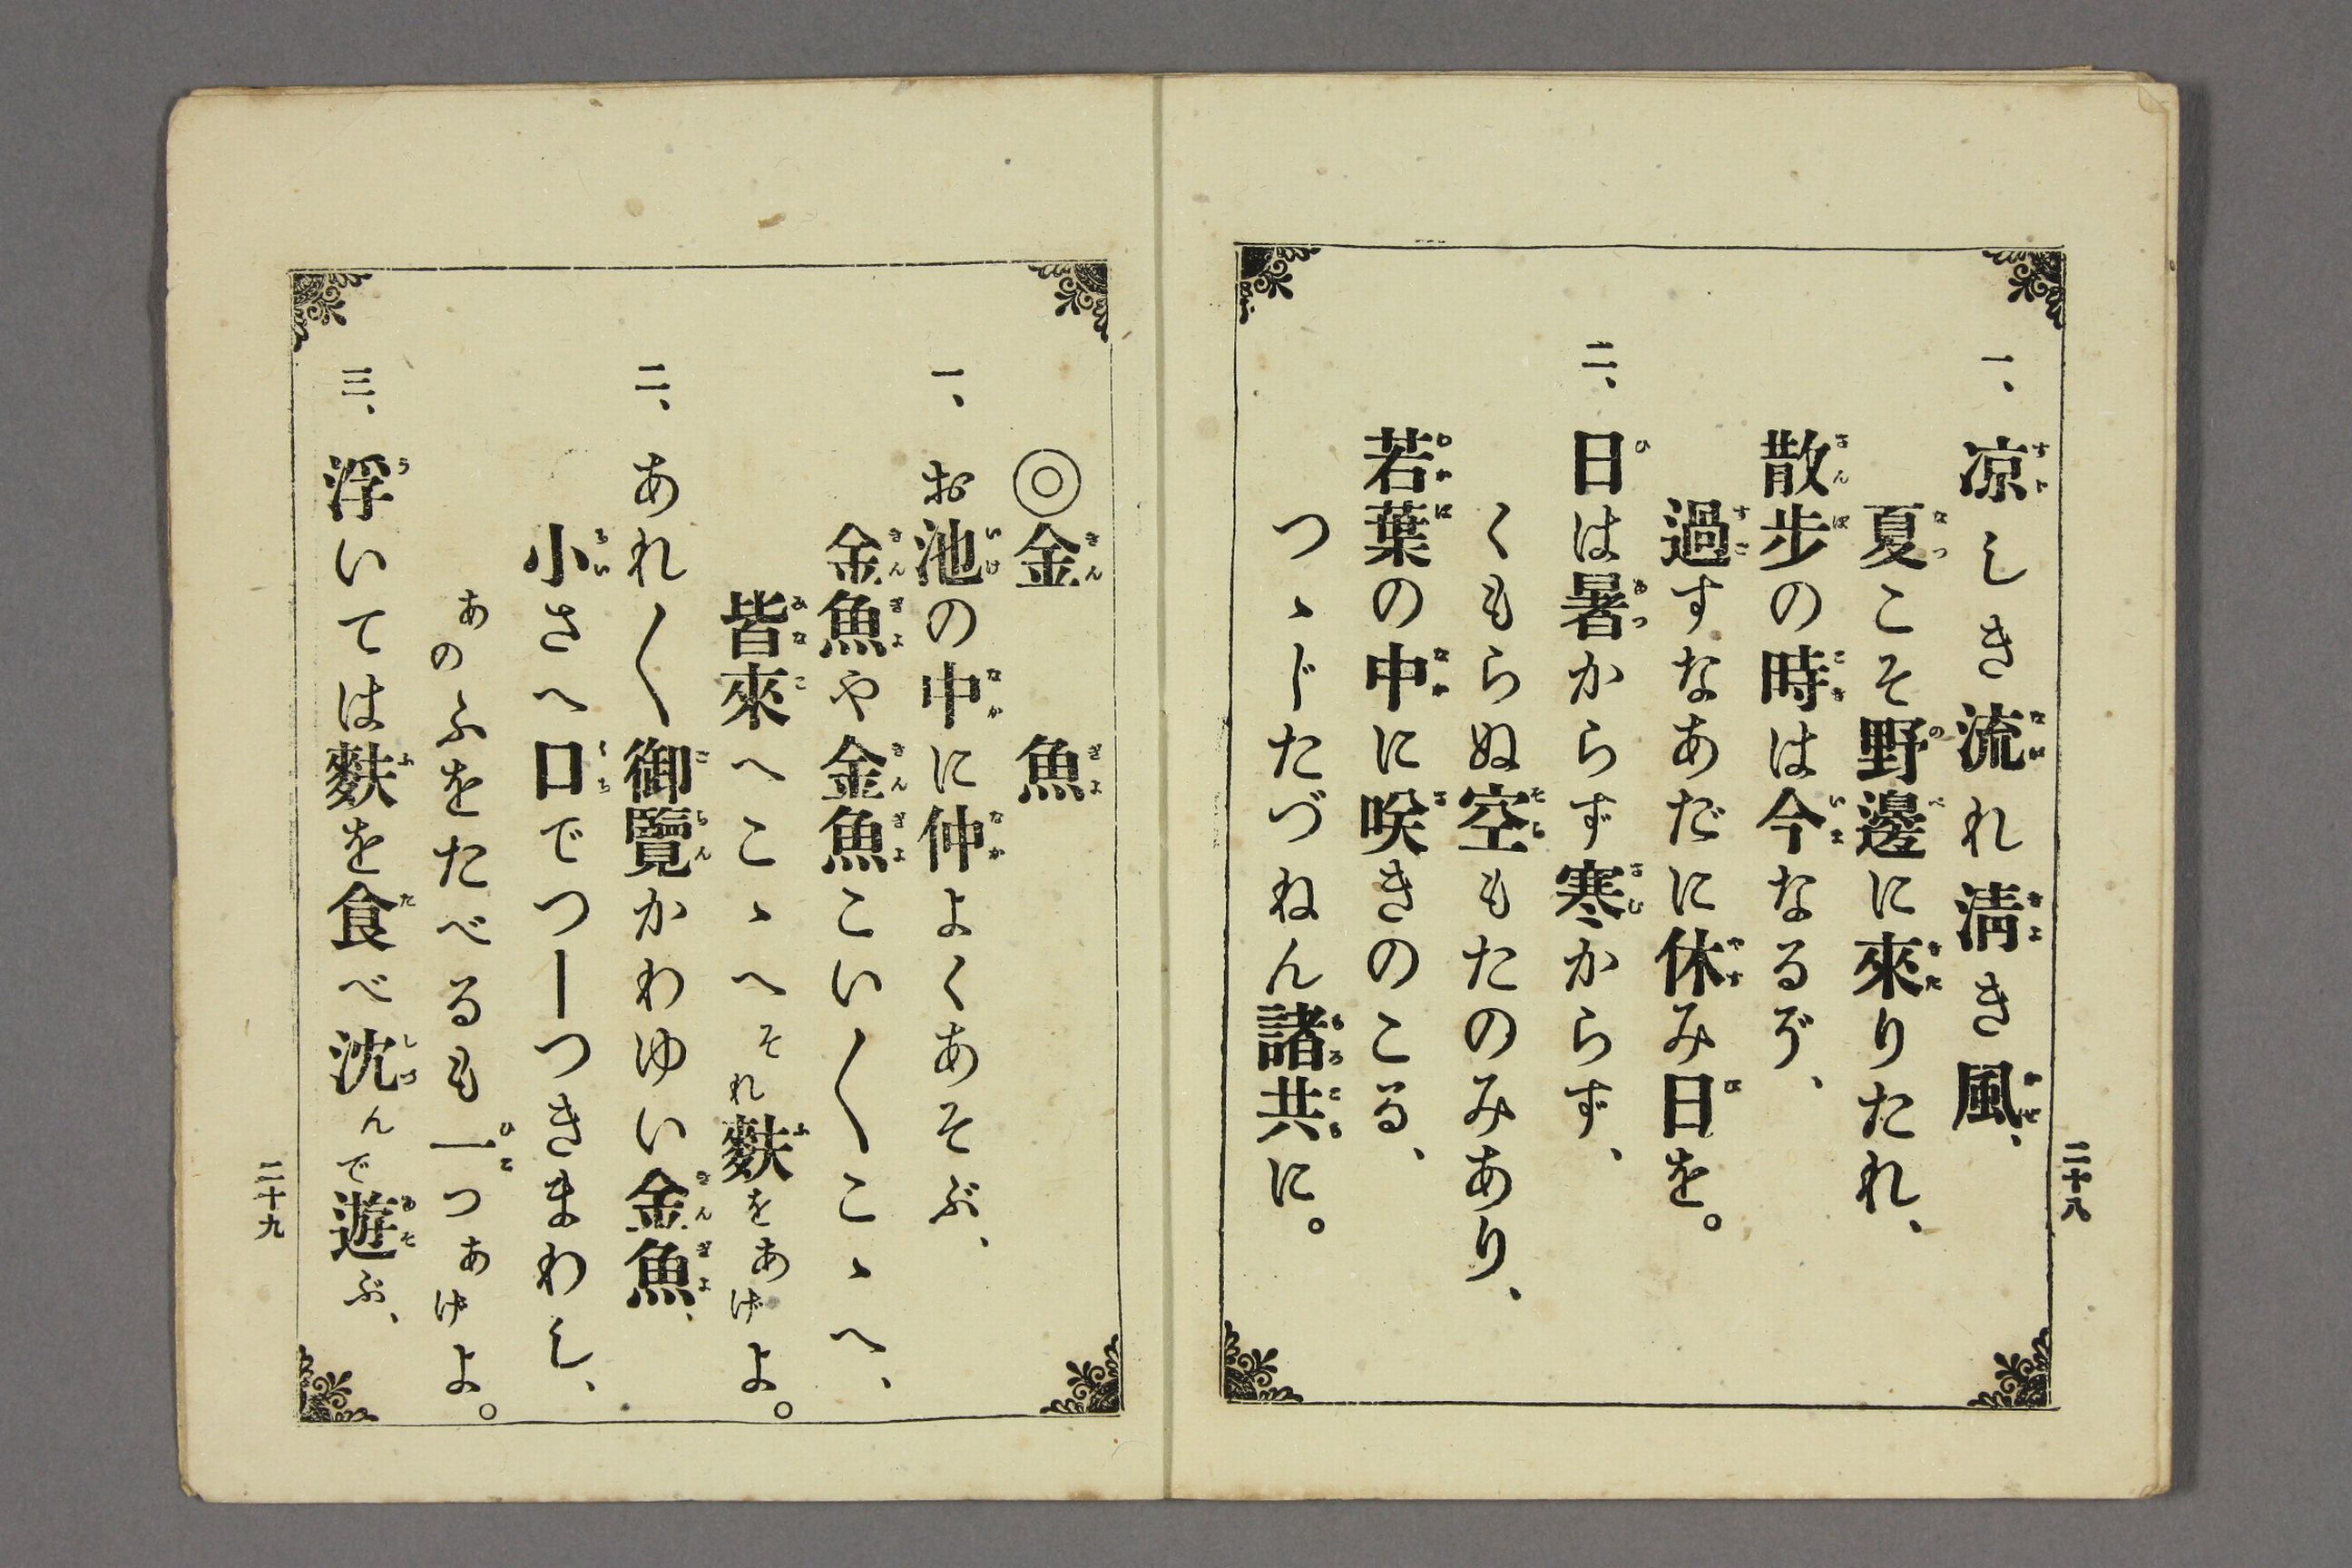 一、凉しき流れ淸き風、
夏こそ野邊に來りたれ、
散步の時は今なるぞ、
過すなあだに休み日を。
二、日は暑からず寒からず、
くもらぬ空もたのみあり、
若葉の中に咲きのこる、
つゝじたづねん諸共に。
二十八
◎金魚
一、お池の中に仲よくあそぶ、
金魚や金魚こい〱こゝへ、
皆來へこゝへそれ麩をあげよ。
二、あれ〱御覽かわゆい金魚、
小さへ口でつーつきまわし、
あのふをたべるも一つあげよ。
三、浮いては麩を食べ沈んで遊ぶ、
二十九